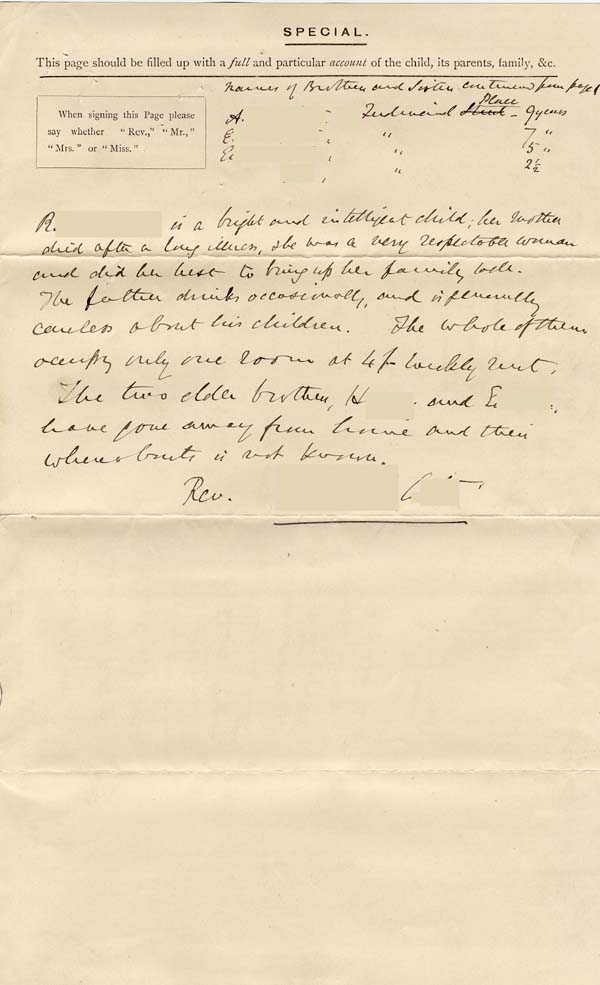 SPECIAL.
This page should be filled up with a full and particular account of the child, its parents, family, &c.
Names of Brothers and Sisters continued from page 1
When signing this Page please
say whether "Rev.," "Mr.,"
"Mrs." or "Miss."
Place
A. Ferdinand Street - 9 years
E. " 7 "
E. " 5 "
" 2½
R. is a bright and intelligent child; her mother
died after a long illness, she was a very respectable woman
and did her best to bring up her family well.
The father drinks occasionally, and is generally
careless about his children. The whole of them
occupy only one room at 4/- weekly rent.
The two elder brothers, H and E
have gone away from home and their
whereabouts is not known.
Rev. C